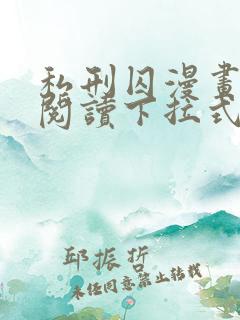 私刑囚漫畫
閱讀下拉式
邱振哲
未经同意禁止转载